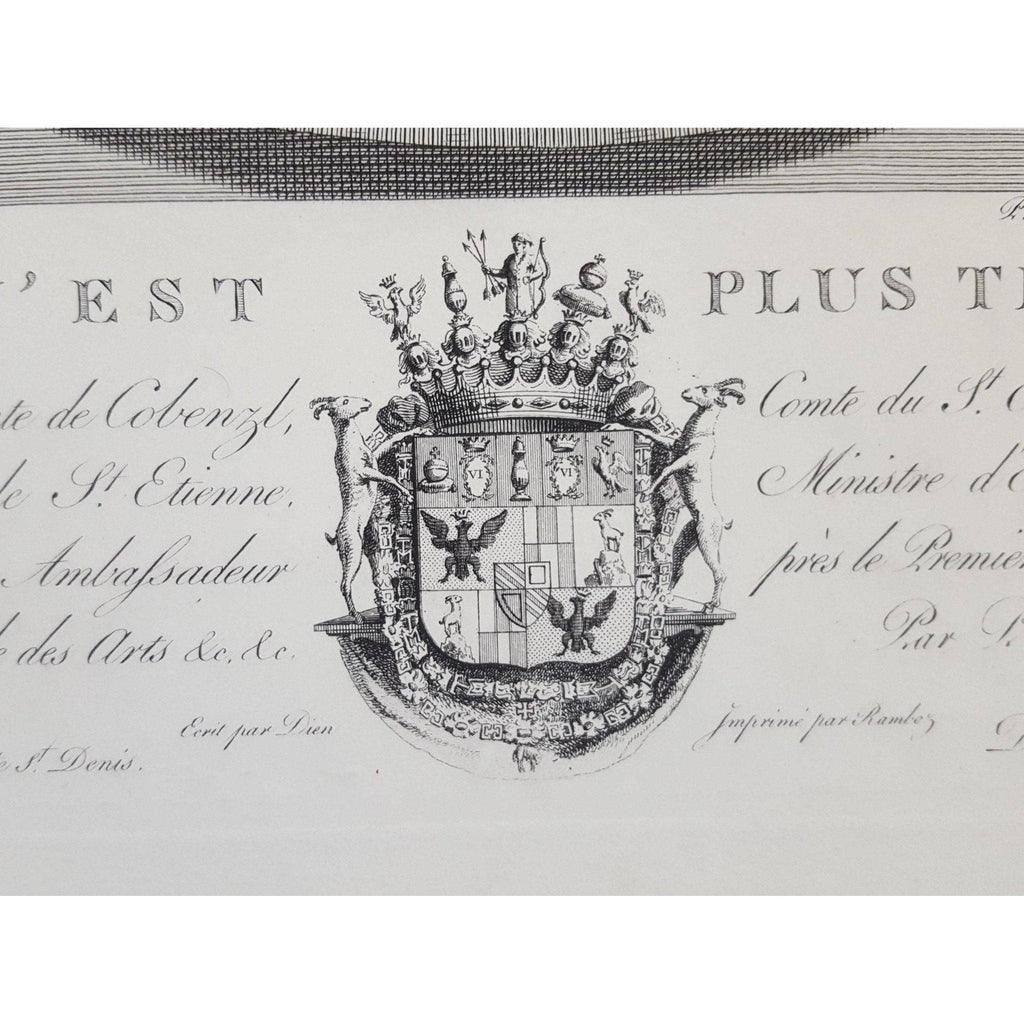 'EST PLUS
te de Cobenzl, Comte du S.t
de S.t Etienne, Ministre d'
Ambassadeur près le Premier
des Arts &c, &c. Par
Ecrit par Dien Imprimé par Ramboz
S.t Denis.
VI VI